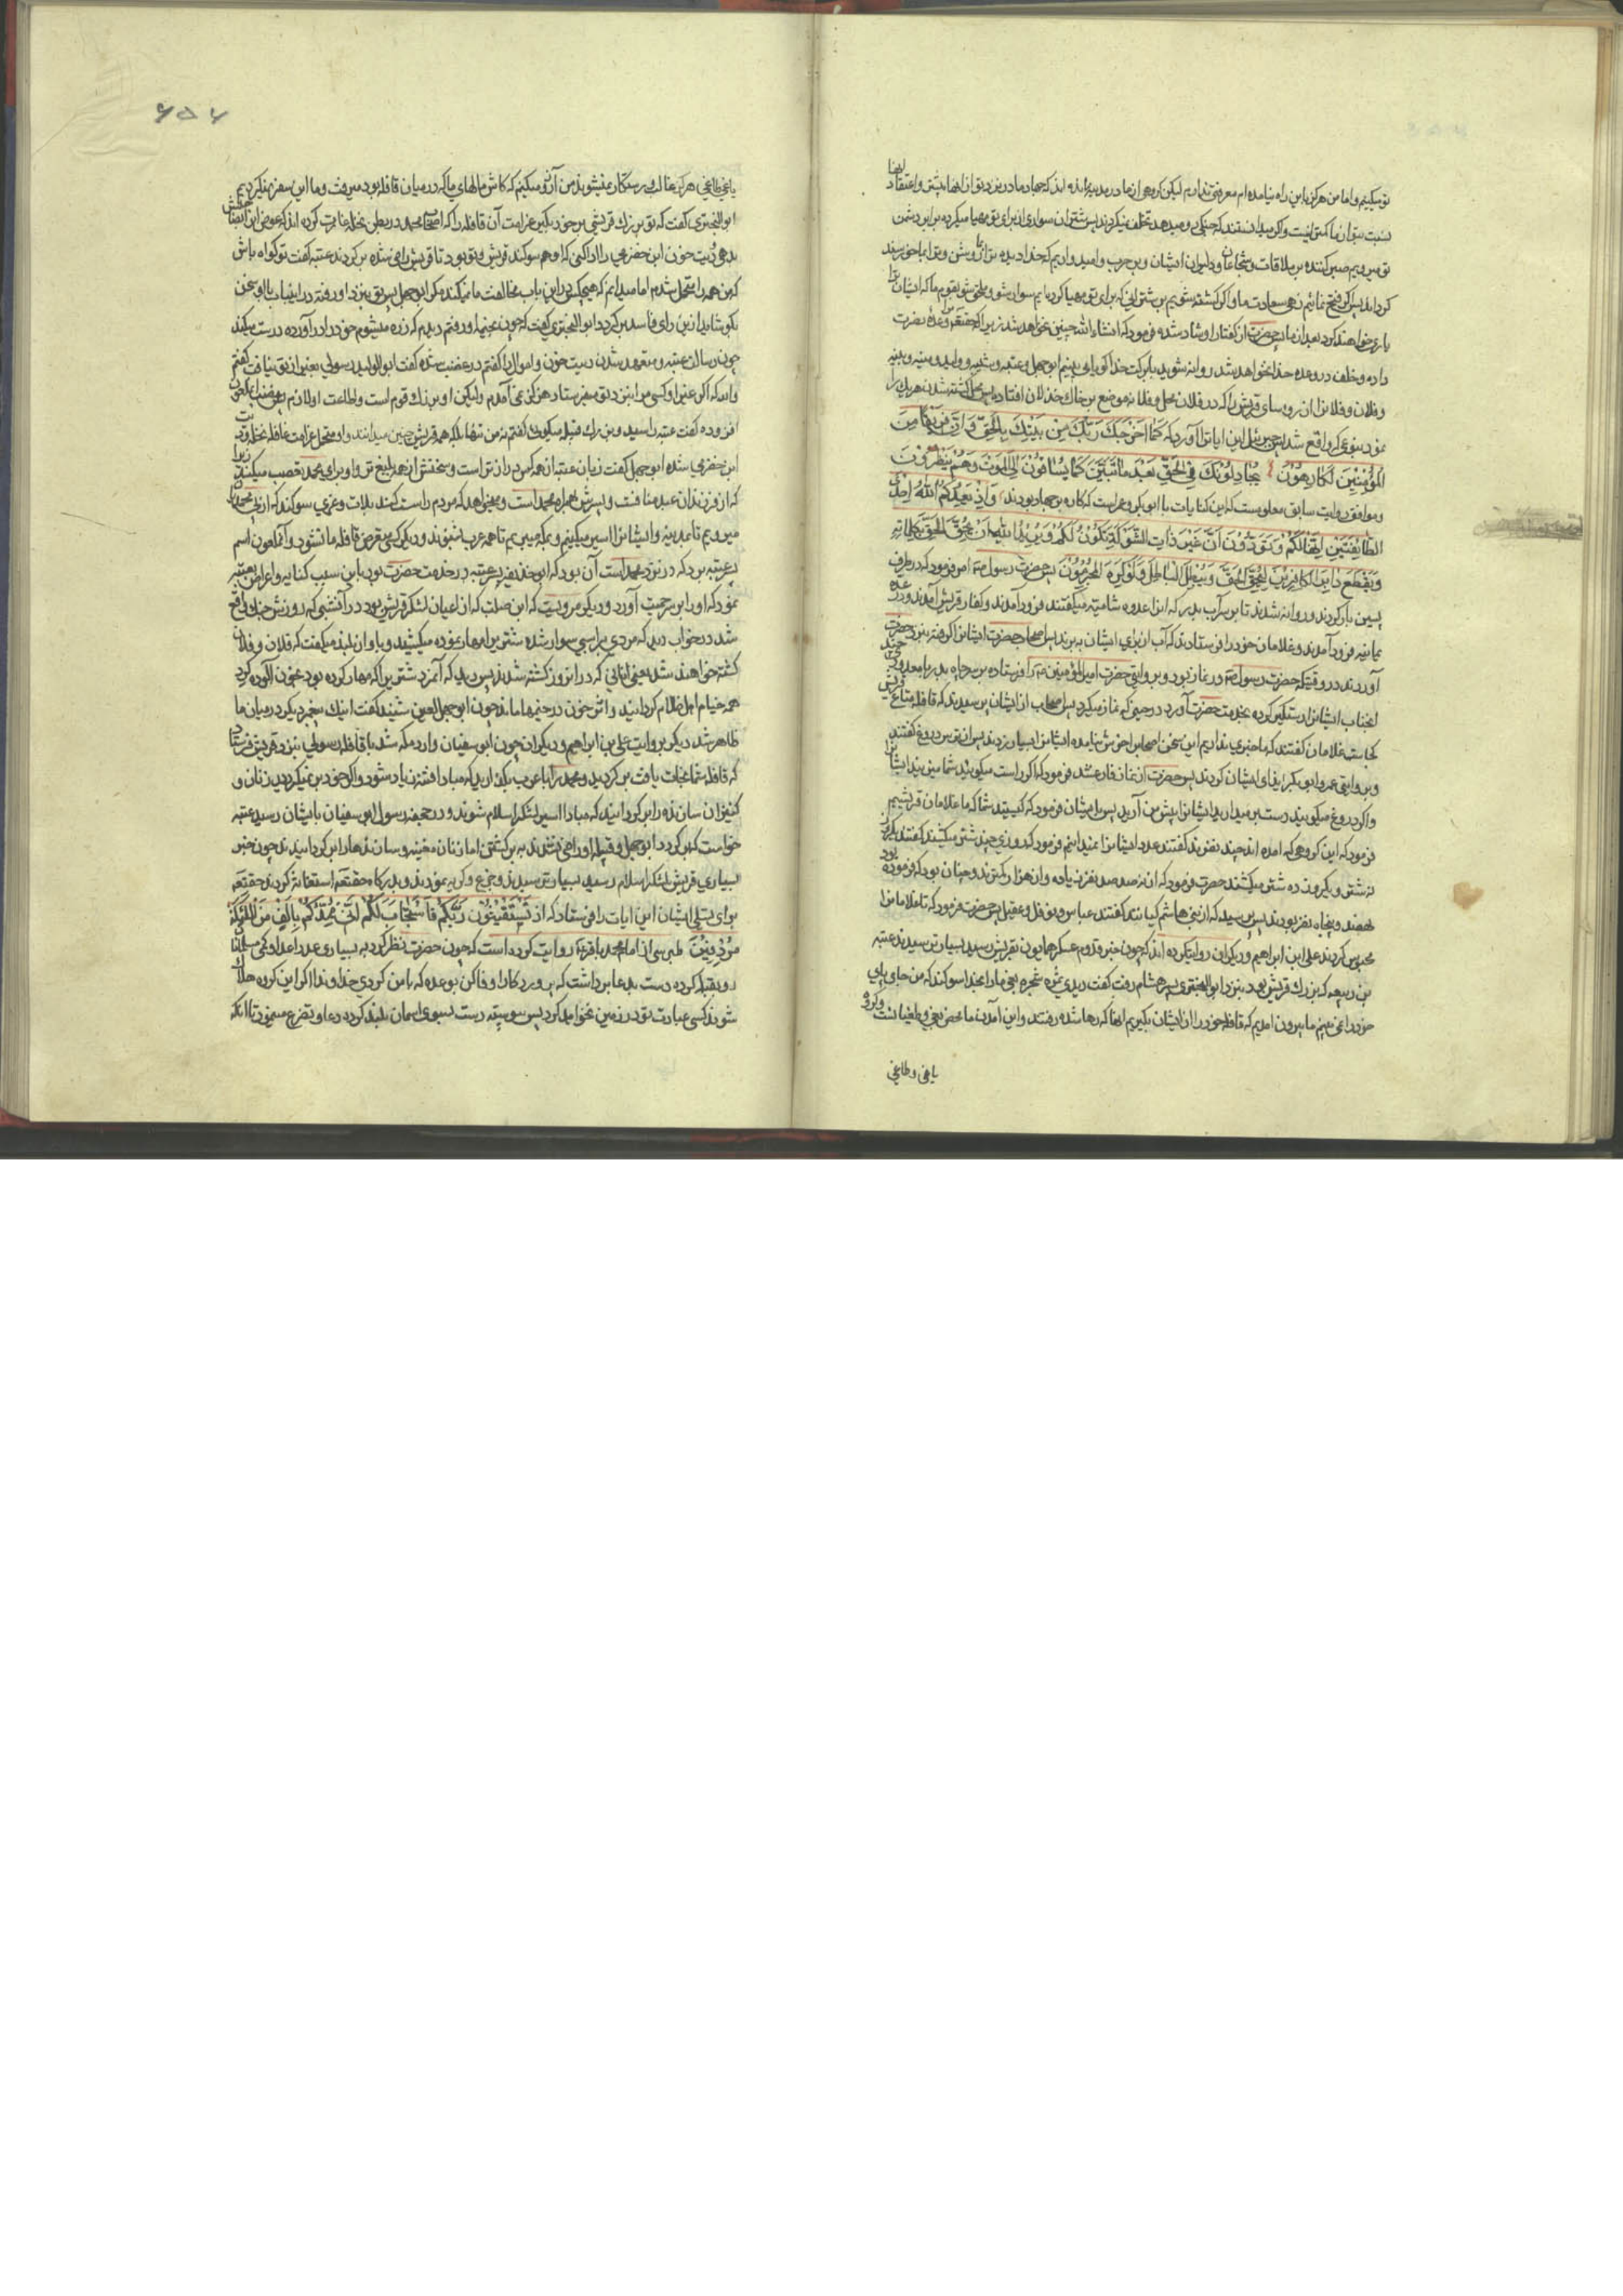 تو میکنیم و اما من هرگز باین راه نیامده ام معرفتی ندارم لیکن گروهی از ما در مدینه مانده اند که جهاد ما در نزد تو از انها بیش و اعتقاد انها
نسبت بتو از ما کمتر نیست و اگر میدانستند که جنگی رو میدهد تخلف نمیکردند پس شتران سواری از برای تو مهیا میکرده برابر دشمن
تو میرویم صبر کننده بر ملاقات و شجاعان و دلیران ایشان و بر حرب و امیدواریم که خدا دیده ترا روشن و ترا بما خورسند
کرداند پس اگر فتح نمائیم زهی سعادت ما و اگر کشته شویم بر شترانی که برای تو مهیا کرده ایم سوار شو و ملحق شو بقوم ما که ایشان ترا
یاری خواهند کرد بعد از ما پس حضرت از گفتار او شاد شده فرمود که انشاء الله چنین نخواهد شد زیرا که حقتعالی وعده نصرت
داده و خلف در وعده خدا نخواهد شد روانه شوید با برکت خدا گویا می بینم ابو جهل و عتبه و شیبه و ولید و منبه و نبیه
و فلان و فلان را از روسای قریش را که در فلان محل و فلان موضع بر خاک خذلان افتاده پس محل کشته شدن هر یک را
نمود بنوعی که واقع شد پس جبرئیل این ایات را آورد که کَمَا اَخْرَجَکَ رَبُّکَ مِنْ بَیْتِکَ بِالْحَقِّ وَاِنَّ فَرِیقًا مِنَ
الْمُؤْمِنِینَ لَکَارِهُونَ یُجَادِلُونَکَ فِی الْحَقِّ بَعْدَ مَا تَبَیَّنَ کَاَنَّمَا یُسَاقُونَ اِلَی الْمَوْتِ وَهُمْ یَنْظُرُونَ
و موافق روایت سابق معلومست که این کنایات با ابو بکر و عمر است که کاره بر جهاد بودند وَاِذْ یَعِدُکُمُ اللهُ اِحْدَی
الطَّائِفَتَیْنِ اَنَّهَا لَکُمْ وَتَوَدُّونَ اَنَّ غَیْرَ ذَاتِ الشَّوْکَةِ تَکُونُ لَکُمْ وَیُرِیدُ اللهُ اَنْ یُحِقَّ الْحَقَّ بِکَلِمَاتِهِ
وَیَقْطَعَ دَابِرَ الْکَافِرِینَ لِیُحِقَّ الْحَقَّ وَیُبْطِلَ الْبَاطِلَ وَلَوْ کَرِهَ الْمُجْرِمُونَ پس حضرت رسول صم امر فرمود که در طرف
پسین بار کردند و روانه شدند تا بر سر آب بدر که انرا عدوه شامیه میگفتند فرود آمدند و کفار قریش آمدند و در عدوه
یمانیه فرود آمدند و غلامان خود را فرستادند که آب از برای ایشان ببرند پس اصحاب حضرت ایشان را گرفته بنزد حضرت
آوردند در وقتیکه حضرت رسول صم در نماز بود و بروایتی حضرت امیر المؤمنین عم را فرستاده بر سر چاه بدر با معدودی چند
انجناب ایشان را دستگیر کرده بخدمت حضرت آورد در حینی که نماز میکرد پس اصحاب از ایشان پرسیدند که قافله متاع قریش
کجاست غلامان گفتند که ما خبری نداریم این سخن اصحاب را خوش نیامده ایشان را بسیار زدند پس از ترس دروغ گفتند
و بروایتی عمر و ابو بکر ایذای ایشان کردند پس حضرت از نماز فارغ شد فرمود که اگر راست میگویند شما میزنید ایشان را
و اگر دروغ میگویند دست برمیدارید ایشان را پیش من آرید پس با ایشان فرمود که کیستید شما که ما غلامان قریشیم
فرمود که این گروهی که امده اند چند نفرند گفتند عدد ایشان را نمیدانیم فرمود که روزی چند شتر میکشند گفتند یکروز
نه شتر و یکروز ده شتر میکشند حضرت فرمود که از نه صد صد نفر زیاده و از هزار کمترند و چنان بود که فرموده بود
نهصد و پنجاه نفر بودند پس پرسید که از بنی هاشم کیانند گفتند عباس و نوفل و عقیل پس حضرت فرمود که تا غلامان را
محبوس کردند علی ابن ابراهیم و دیگران روایت کرده اند که چون خبر قدوم عسکر همایون بقریش رسید بسیار ترسیدند عتبه
بن ربیعه که بزرک قریش بود بنزد ابو البختری پسر هشام رفت گفت دیدی ثمره شجره بغی ما را بخدا سوکند که من جای پای
خود را نمی بینم ما بیرون امدیم که قافله خود را از ایشان بگیریم انها که رها شده رفتند و این آمدن ما محض بغی و طغیانست و گروه
یاغی و طاغی
۶۵۶
یاغی طاغی هرگز غالب و رستگار نمیشوند من آرزو میکنم که کاش مالهای ما که در میان قافله بود میرفت و ما این سفر نمیکردیم
ابو البختری گفت که تو بزرک قریشی بر خود بگیر غرامت آن قافله را که اصحاب محمد در بطن نخله غارت کرده اند که عوض ابن الحضرمی
بدهی دیت خون ابن حضرمی را ادا کنی که او هم سوکند قریش و تو بود تا قریش راضی شده برکردند عتبه گفت تو کواه باش
که من همه را متحمل شدم اما میدانم که هیچکس در این باب مخالفت ما نمیکند مگر ابو جهل پس تو بنزد او رفته در اینباب با او سخن
بگو شاید از این رای فاسد برکردد ابو البختری گفت که چون بخیمه او رفتم دیدم که زره میشوم خود را در آورده درست میکند
چون رسالت عتبه و متعهد شدن دیت خون و اموال را گفتم در غضب شده گفت ابو الولید رسولی بغیر از تو نیافت گفتم
والله که اگر غیر او کسی مرا بنزد تو میفرستاد هرگز نمی آمدم ولیکن او بزرک قوم است و اطاعت او لازم پس غضب ابو جهل
افزوده گفت عتبه را سید و بزرک قبیله میگوئی گفتم نه من تنها بلکه همه قریش چنین میدانند و او متحمل غرامت قافله نخله و دیت
ابن حضرمی شده ابو جهل گفت زبان عتبه از همه کس دراز تر است و سخنش از همه بلیغ تر و او برای محمد تعصب میکند زیرا
که از فرزندان عبد منافست و پسرش همراه محمد است و میخواهد که مردم را سست کند بلات و عزی سوکند که از پی محمد
میرویم تا مدینه و ایشان را اسیر میکنیم و بمکه میبریم تا همه عرب بشنوند و دیگر کسی متعرض قافله ما نشود و آنملعون اسم
عتبه برد که در نزد محمد است آن بود که ابو حذیفه پسر عتبه در خدمت حضرت بود باین سبب کنایه و اعراض بعتبه
نمود که او را بر سر حمیت آورد و دیگر مرویست که ابن صلت که از اعیان لشکر قریش بود در آنشبی که روزش جنگ واقع
شد در خواب دید که مردی بر اسبی سوار شده شتری را مهار نموده میکشید و باواز بلند میگفت که فلان و فلان
کشته خواهند شد یعنی انانی که در انروز کشته شدند پس دید که آنمرد شتری را که مهار کرده بود بخون آلوده کرد
همه خیام اهل ظلام کردانید و اثر خون در خیمها ماند چون ابو جهل لعین شنید گفت اینک پیغمبر دیگر در میان ما
ظاهر شد دیگر بروایت علی بن ابراهیم و دیگران چون ابو سفیان وارد مکه شد با قافله رسولی بنزد قریش فرستاد
که قافله شما نجات یافت برکردید و محمد را با عرب بگذارید که مبادا فتنه زیاد شود و اگر خود بر نمیگردید زنان و
کنیزان سازنده را برکردانید که مبادا اسیر لشکر اسلام شوند و در جحفه رسول ابو سفیان بایشان رسید عتبه
خواست که برکردد ابو جهل و قبیله او راضی نشدند به برکشتن اما زنان مغنیه و سازندها را برکردانیدند چون خبر
بسیاری قریش بلشکر اسلام رسید بسیار ترسیدند و جزع و گریه نمودند و بدرکاه حقتعالی استغاثه کردند حقتعالی
برای تسلی ایشان این ایات را فرستاد که اِذْ تَسْتَغِیثُونَ رَبَّکُمْ فَاسْتَجَابَ لَکُمْ اَنِّی مُمِدُّکُمْ بِاَلْفٍ مِنَ الْمَلٰئِکَةِ
مُرْدِفِینَ طبرسی از امام محمد باقر ع روایت کرده است که چون حضرت نظر کرد به بسیاری عدد اعدا و کمی مسلمانان
رو بقبله کرده دست بدعا برداشت که پروردکارا وفا کن بوعده که با من کردی خداوندا اگر این کروه هلاک
شوند کسی عبادت تو در زمین نخواهد کرد پس پیوسته دست بسوی اسمان بلند کرده دعا و تضرع مینمود تا آنکه